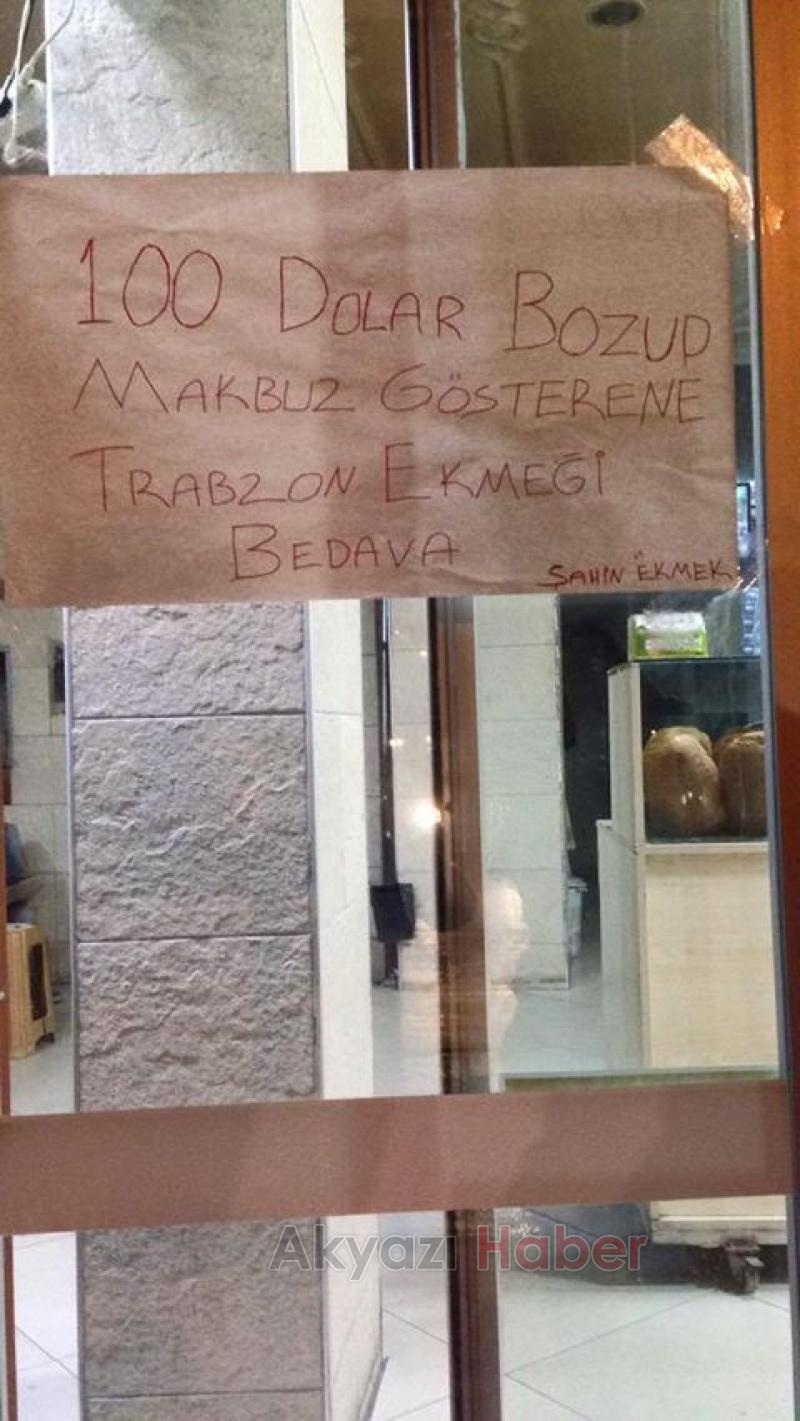 100 DOLAR BOZUP
MAKBUZ GÖSTERENE
TRABZON EKMEĞİ
BEDAVA
ŞAHİN EKMEK
Akyazı Haber